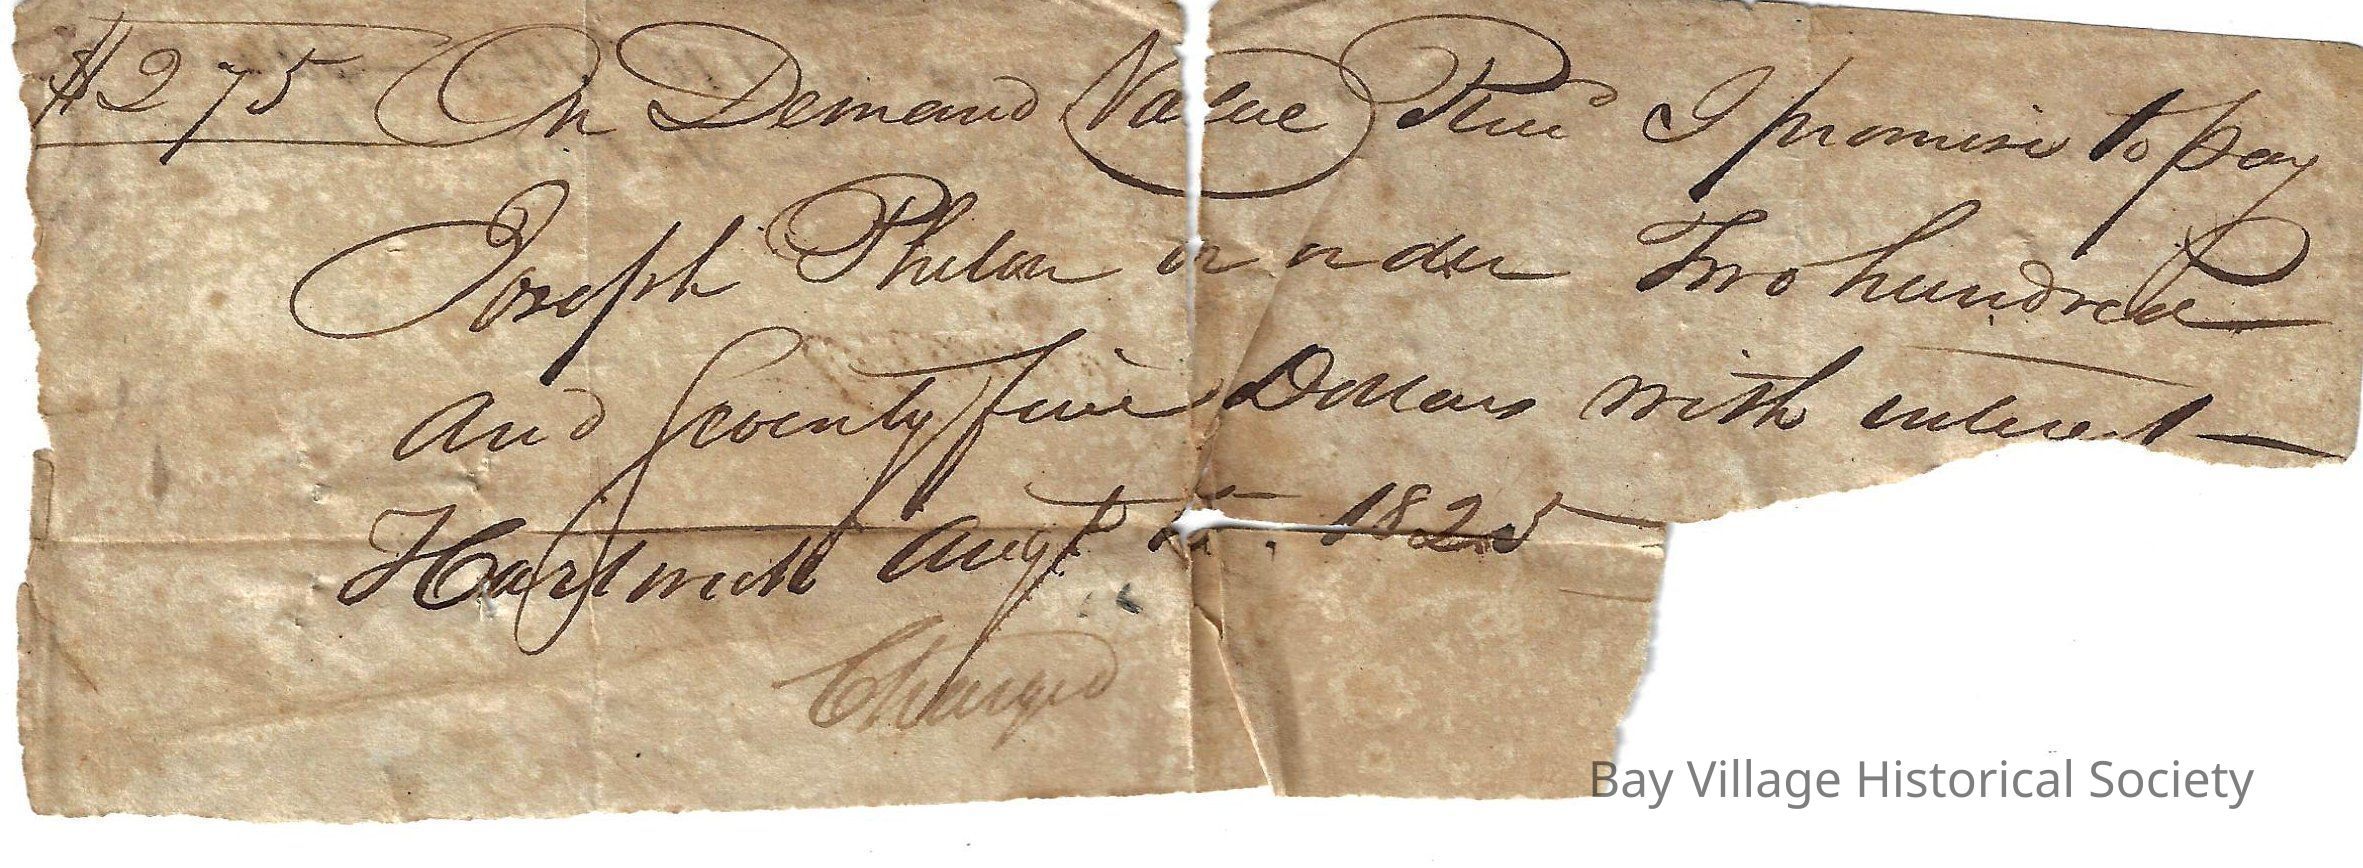 $275 On Demand Value Recd I promise to pay
Joseph Phelon or order Two hundred
and Seventy five Dollars with interest
Hartwick Augt 1825
Charged
Bay Village Historical Society